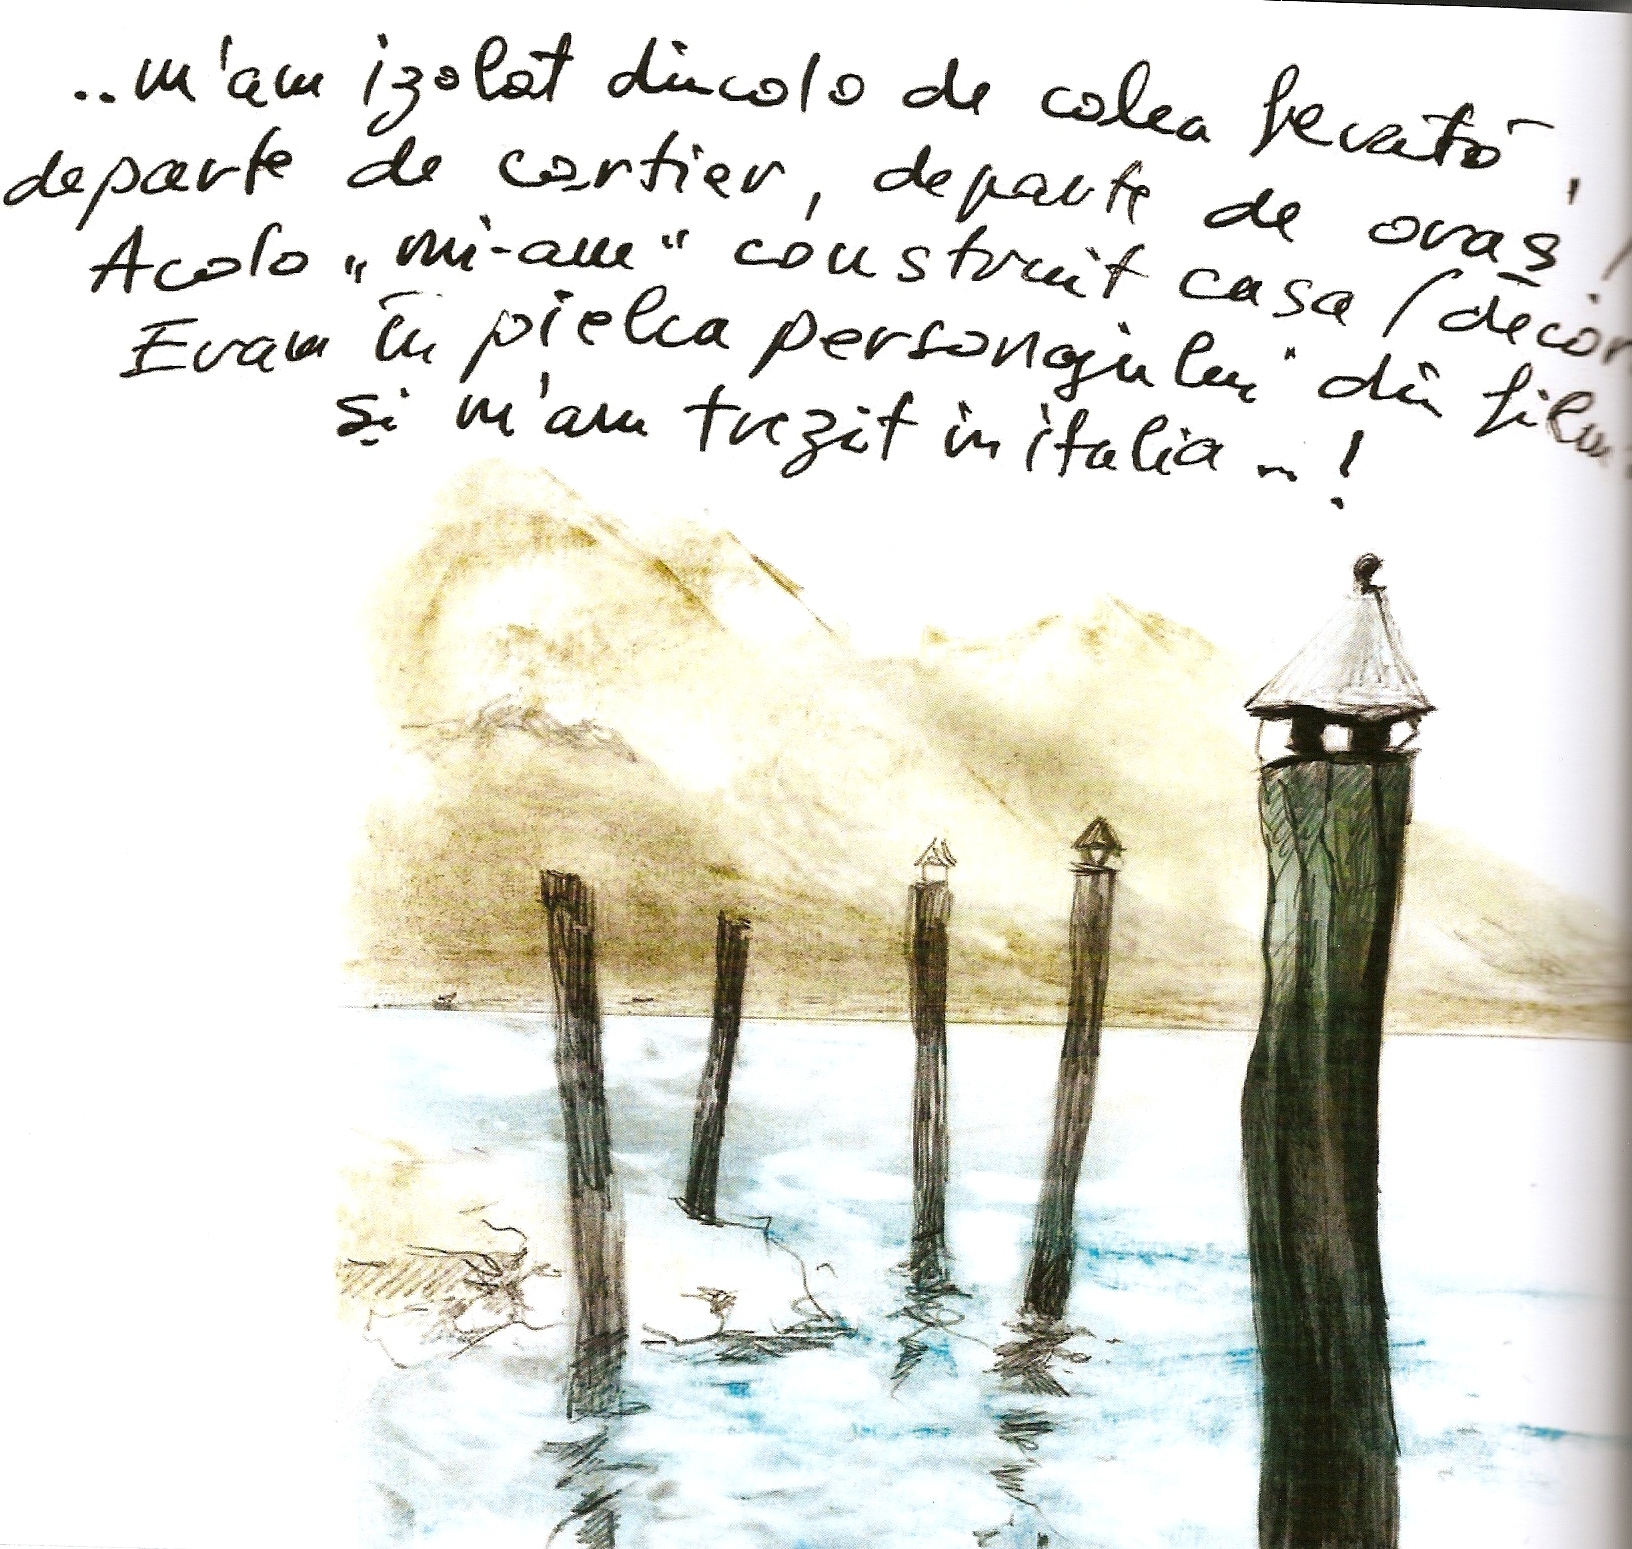 ..m'am izolat dincolo de calea ferată,
departe de cartier, departe de oraș!
Acolo „mi-am“ construit casa (decor
Eram în pielea personajului din film
și m'am trezit in italia...!